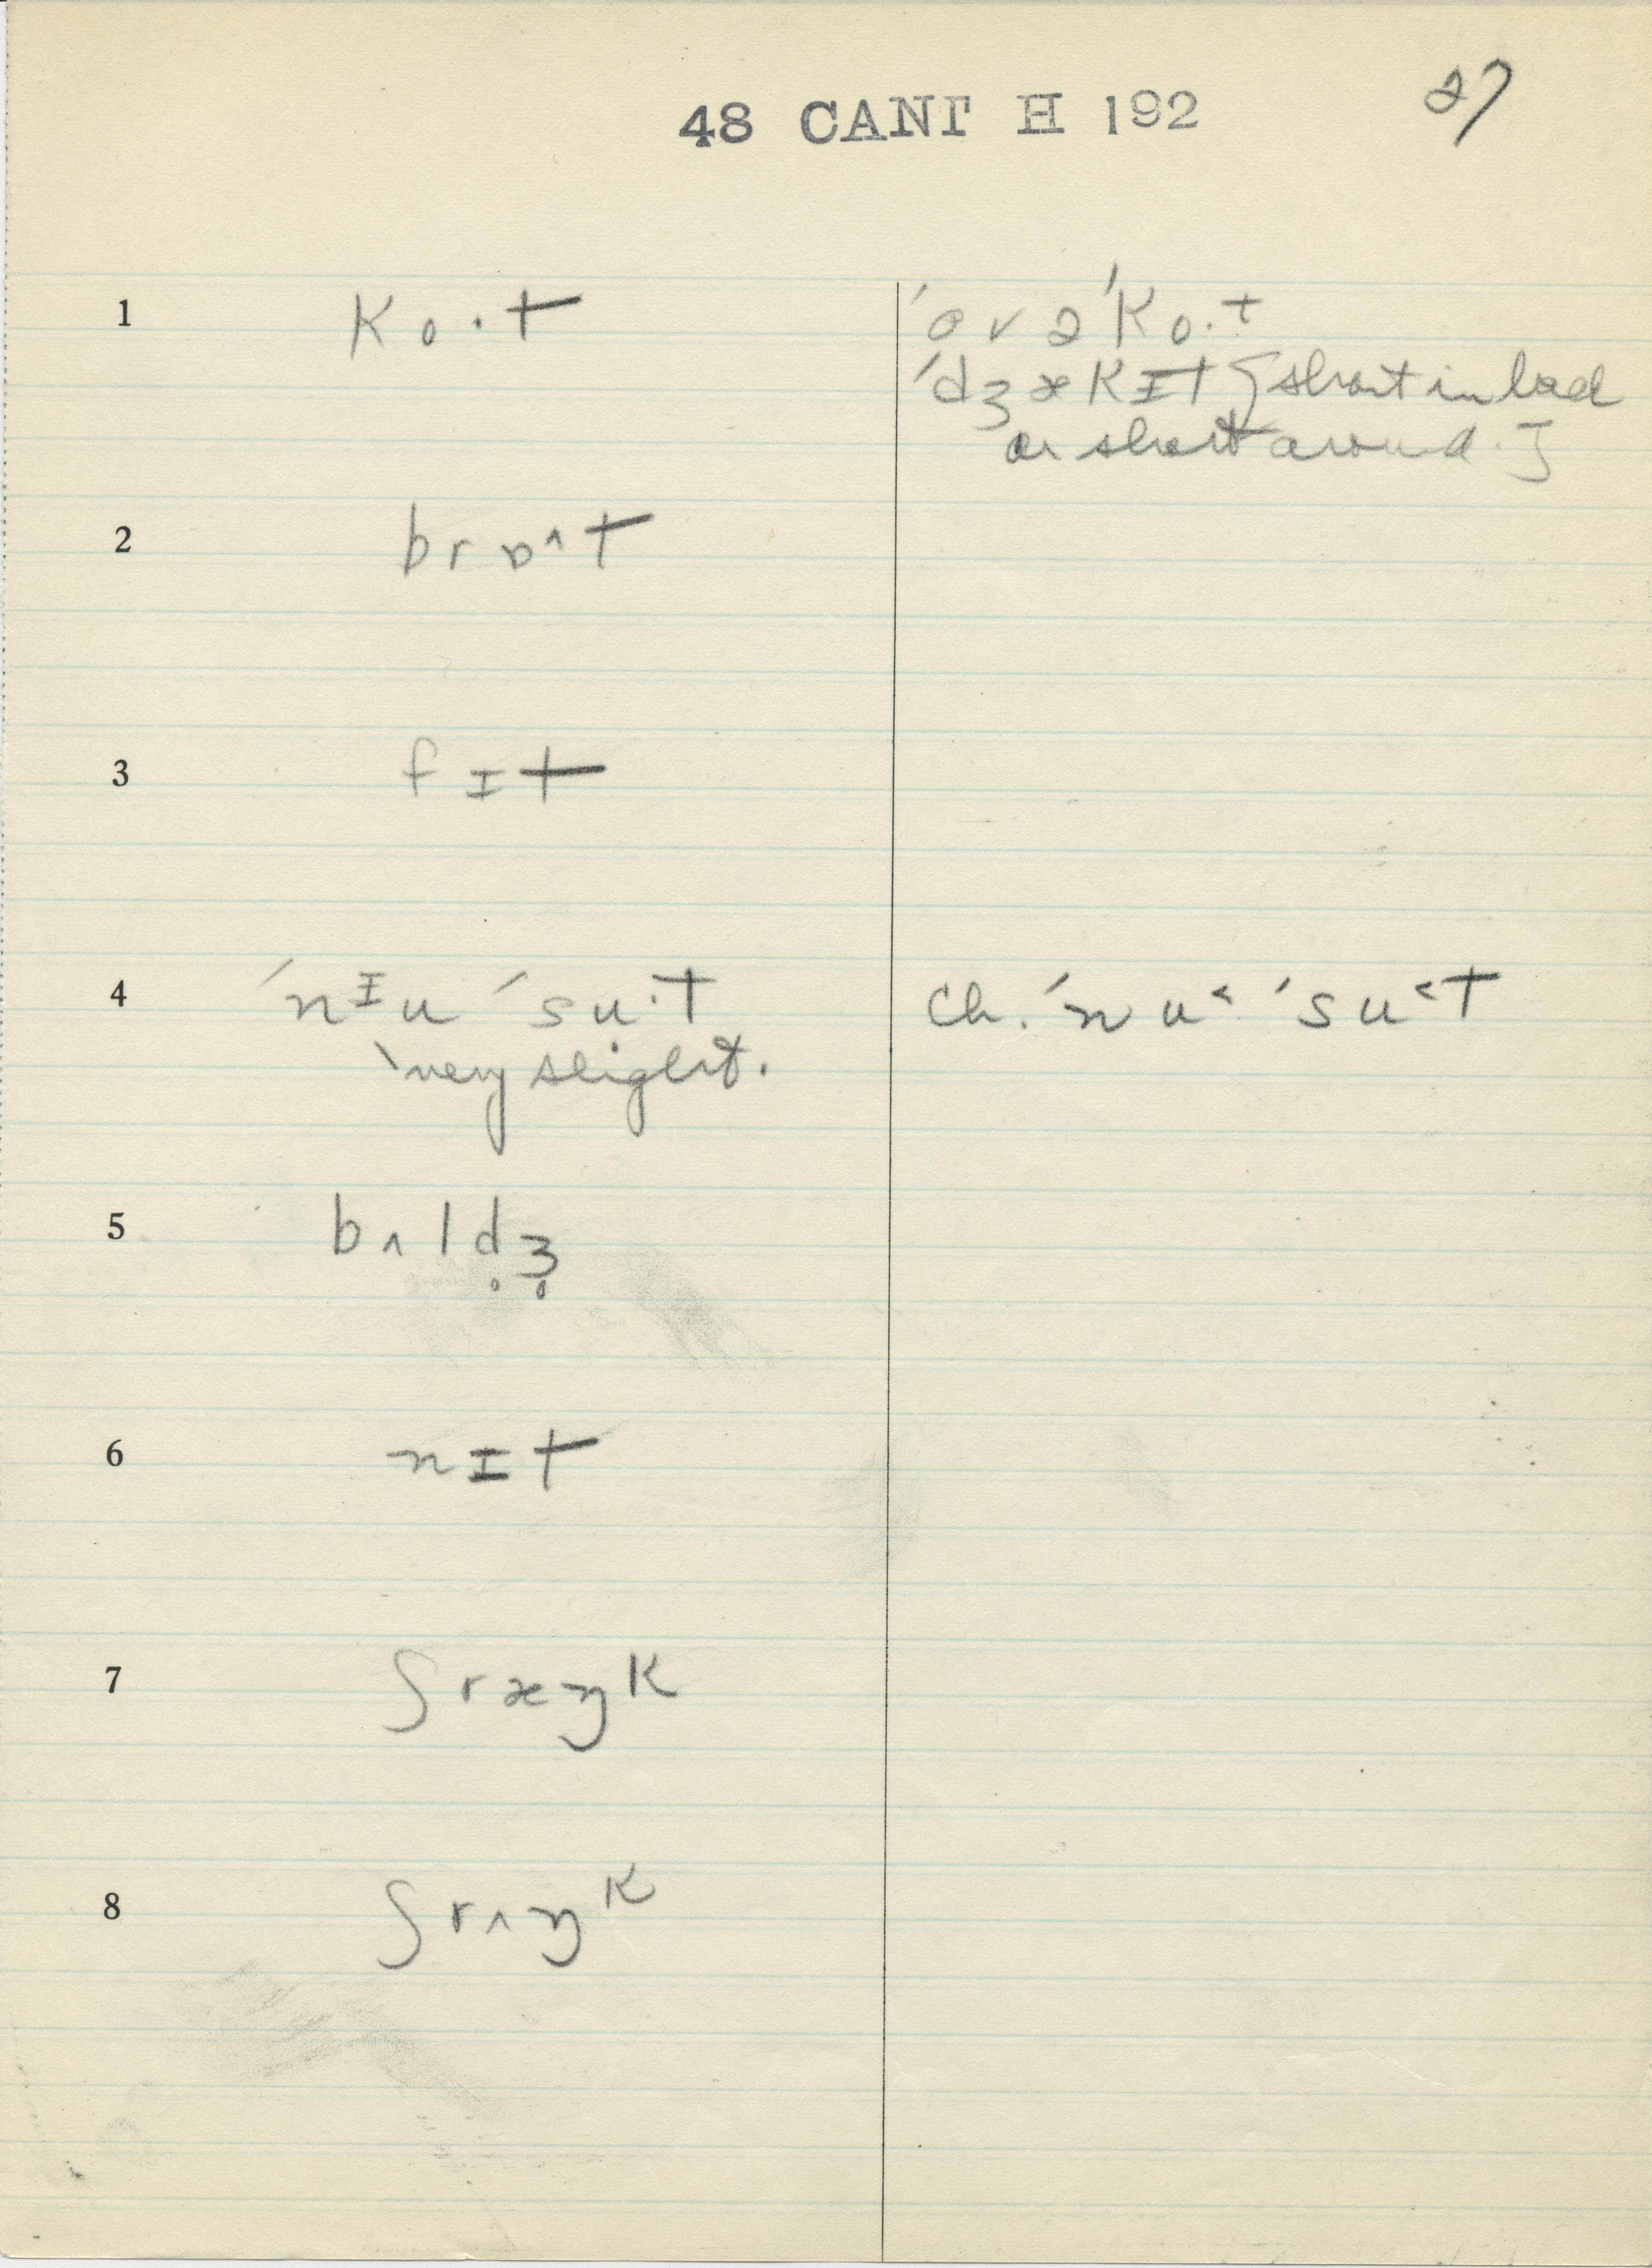 48 CANT H 192
27
1 ko·t
ˈovəˈko·t
ˈdʒækɪt [short in back
or short around.]
2 brɒ^t
3 fɪt
4 ˈnᶦu ˈsu·t
very slight.
Ch. ˈnu˂ ˈsu˂t
5 bʌld̥ʒ̥
6 nɪt
7 ʃræŋk
8 ʃrʌŋk